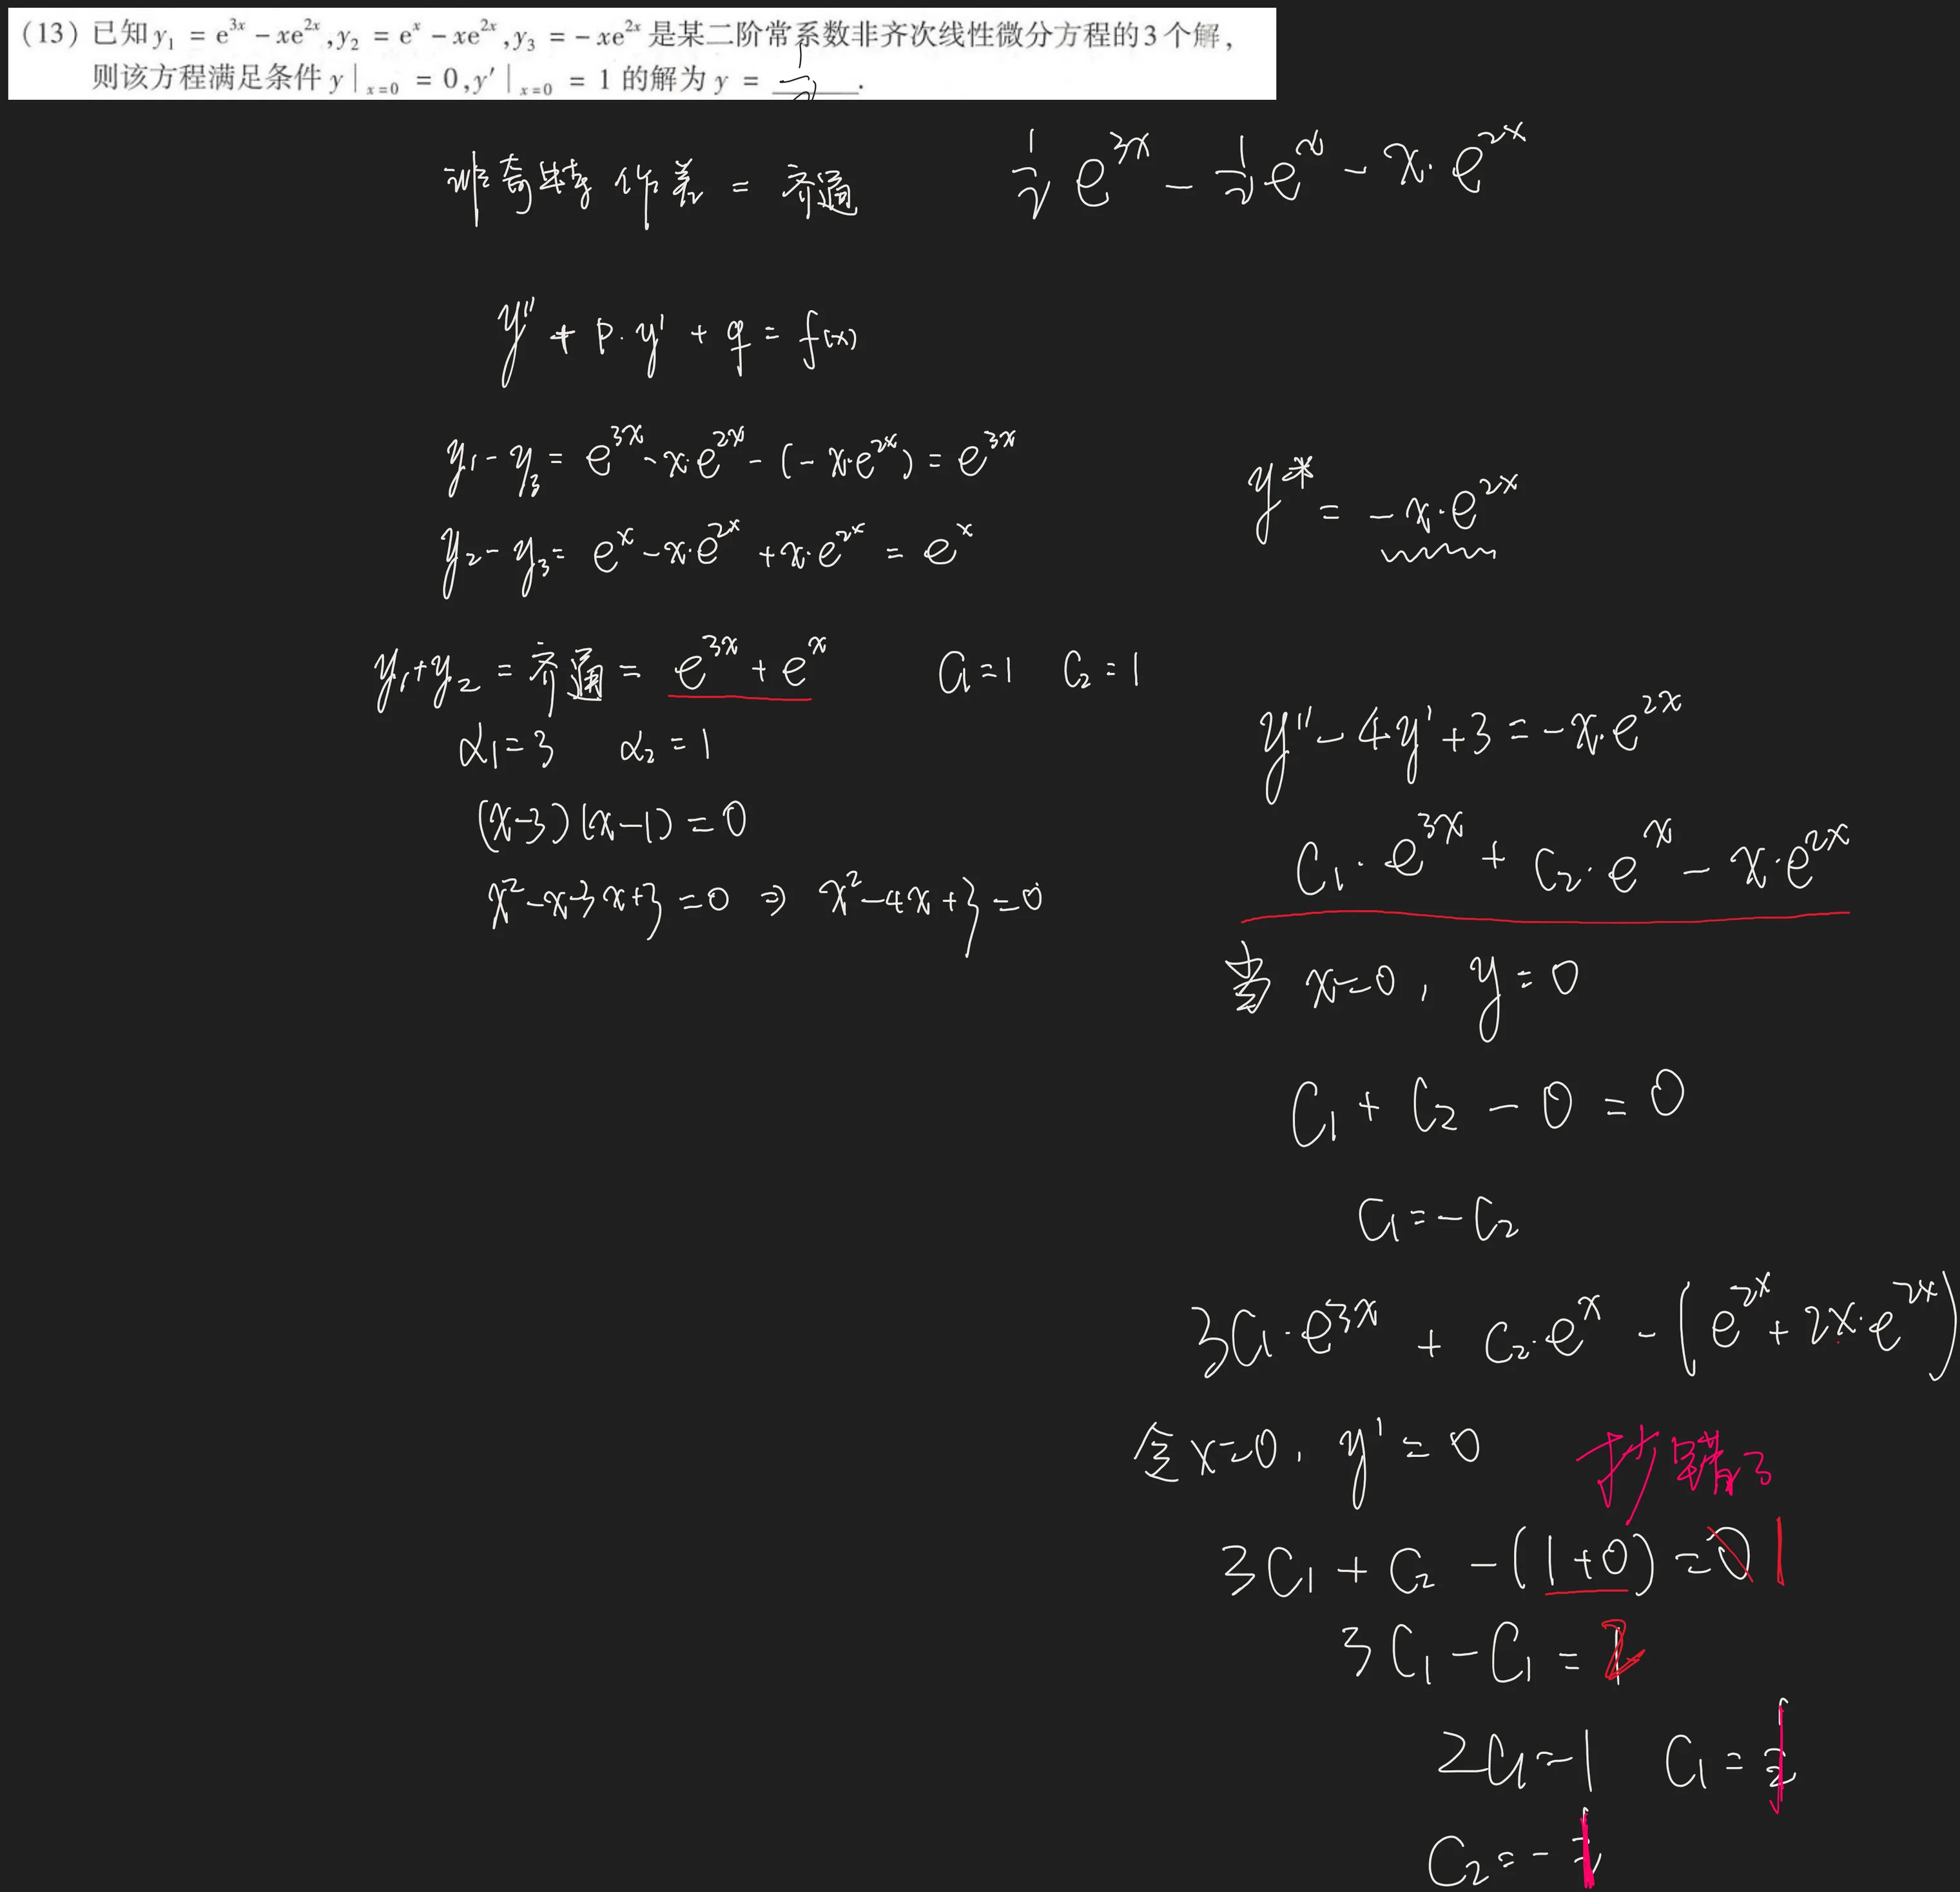 (13) 已知 y₁ = e³ˣ − xe²ˣ, y₂ = eˣ − xe²ˣ, y₃ = − xe²ˣ 是某二阶常系数非齐次线性微分方程的3个解,
则该方程满足条件 y|ₓ₌₀ = 0, y′|ₓ₌₀ = 1 的解为 y = ______.
非齐特作差 = 齐通
1/2 e³ˣ − 1/2 eˣ − x·e²ˣ
y″ + p·y′ + q = f(x)
y₁ − y₃ = e³ˣ − x·e²ˣ − (−x·e²ˣ) = e³ˣ
y₂ − y₃ = eˣ − x·e²ˣ + x·e²ˣ = eˣ
y₁ + y₂ = 齐通 = e³ˣ + eˣ C₁=1 C₂=1
α₁=3 α₂=1
(x−3)(x−1)=0
x²−x−3x+3=0 ⇒ x²−4x+3=0
y* = −x·e²ˣ
y″ − 4y′ + 3 = −x·e²ˣ
C₁·e³ˣ + C₂·eˣ − x·e²ˣ
当 x=0, y=0
C₁ + C₂ − 0 = 0
C₁ = −C₂
3C₁·e³ˣ + C₂·eˣ − (e²ˣ + 2x·e²ˣ)
令 x=0, y′=0
抄错了
3C₁ + C₂ − (1+0) = 0 1
3C₁ − C₁ = 2
2C₁ = 1 C₁ = 1
C₂ = −1